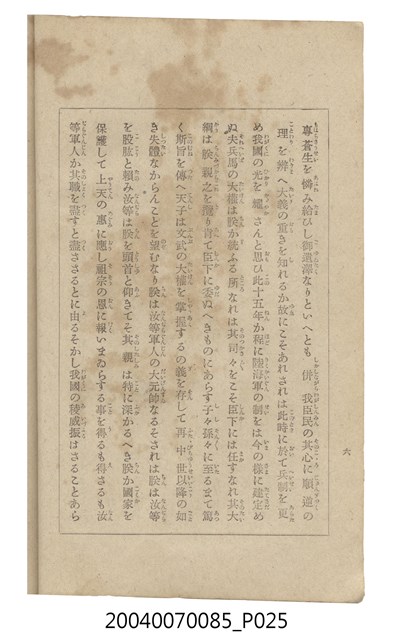 專蒼生を憐み給ひし御遺澤なりといへとも併我臣民の其心に順逆の
理を辨へ大義の重きを知れるか故にこそあれされは此時に於て兵制を更
め我國の光を耀さんと思ひ此十五年か程に陸海軍の制をは今の樣に建定め
ぬ夫兵馬の大權は朕か統ふる所なれは其司々をこそ臣下には任すなれ其大
綱は朕親之を攬り肯て臣下に委ぬへきものにあらす子々孫々に至るまて篤
く斯旨を傳へ天子は文武の大權を掌握するの義を存して再中世以降の如
き失體なからんことを望むなり朕は汝等軍人の大元帥なるそされは朕は汝等
を股肱と頼み汝等は朕を頭首と仰きてそ其親は特に深かるへき朕か國家を
保護して上天の惠に應し祖宗の恩に報いまゐらする事を得るも得さるも汝
等軍人か其職を盡すと盡さゝるとに由るそかし我國の稜威振はさることあら
六
20040070085_P025